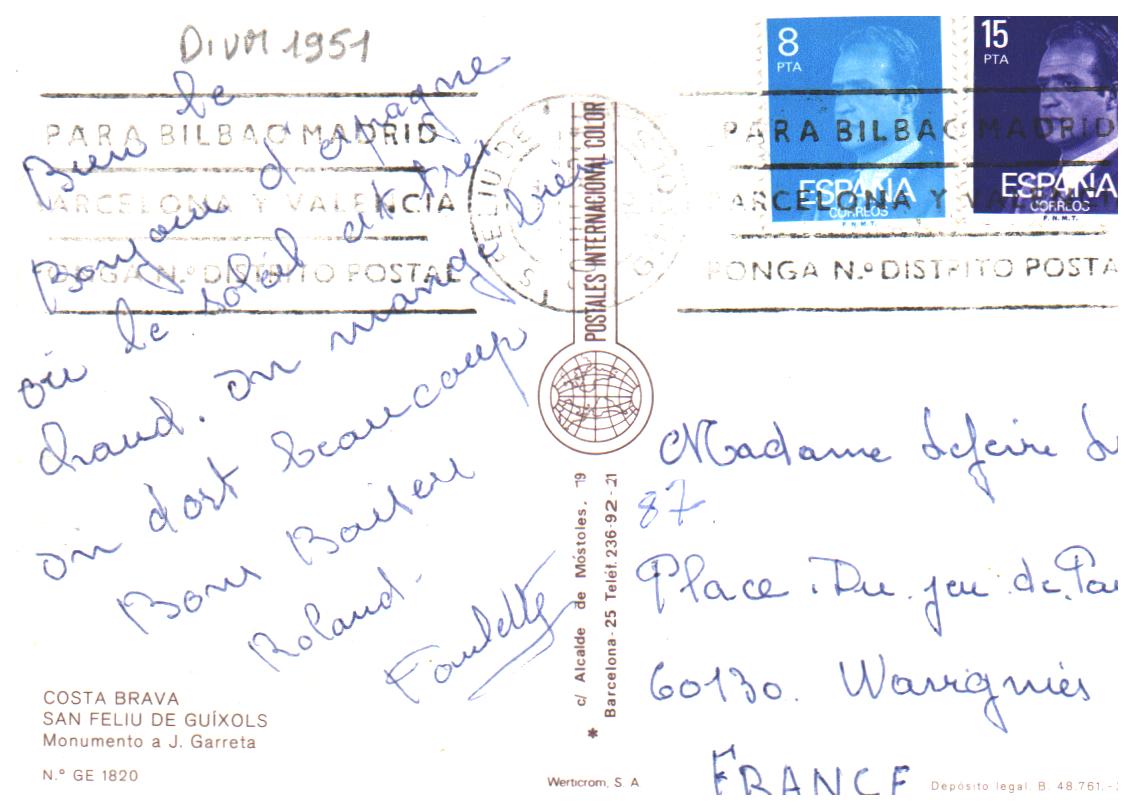 DIVM 1951
Bien le
Bonjour d'epagne
où le soleil est tres
chaud. on mange bien
on dort beaucoup
Bons Baisers
Roland.
Paulette
COSTA BRAVA
SAN FELIU DE GUÍXOLS
Monumento a J. Garreta
N.º GE 1820
PARA BILBAO MADRID
BARCELONA Y VALENCIA
PONGA N.º DISTRITO POSTAL
S. FELIU DE
POSTALES INTERNACIONAL COLOR
c/ Alcalde de Móstoles, 19
Barcelona-25 Teléf. 236-92-21
Werticrom, S. A
8
PTA
ESPAÑA
CORREOS
F.N.M.T.
15
PTA
ESPAÑA
CORREOS
F.N.M.T.
PARA BILBAO MADRID
BARCELONA Y
PONGA N.º DISTRITO POSTA
Madame
87
Place Du jeu de Pau
60130. Wavignies
FRANCE
Depósito legal. B. 48.761.-